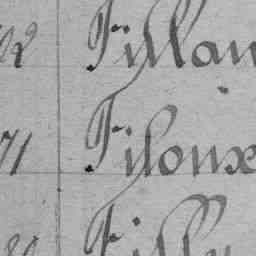 92 Fillau
71 Filoux
Filly